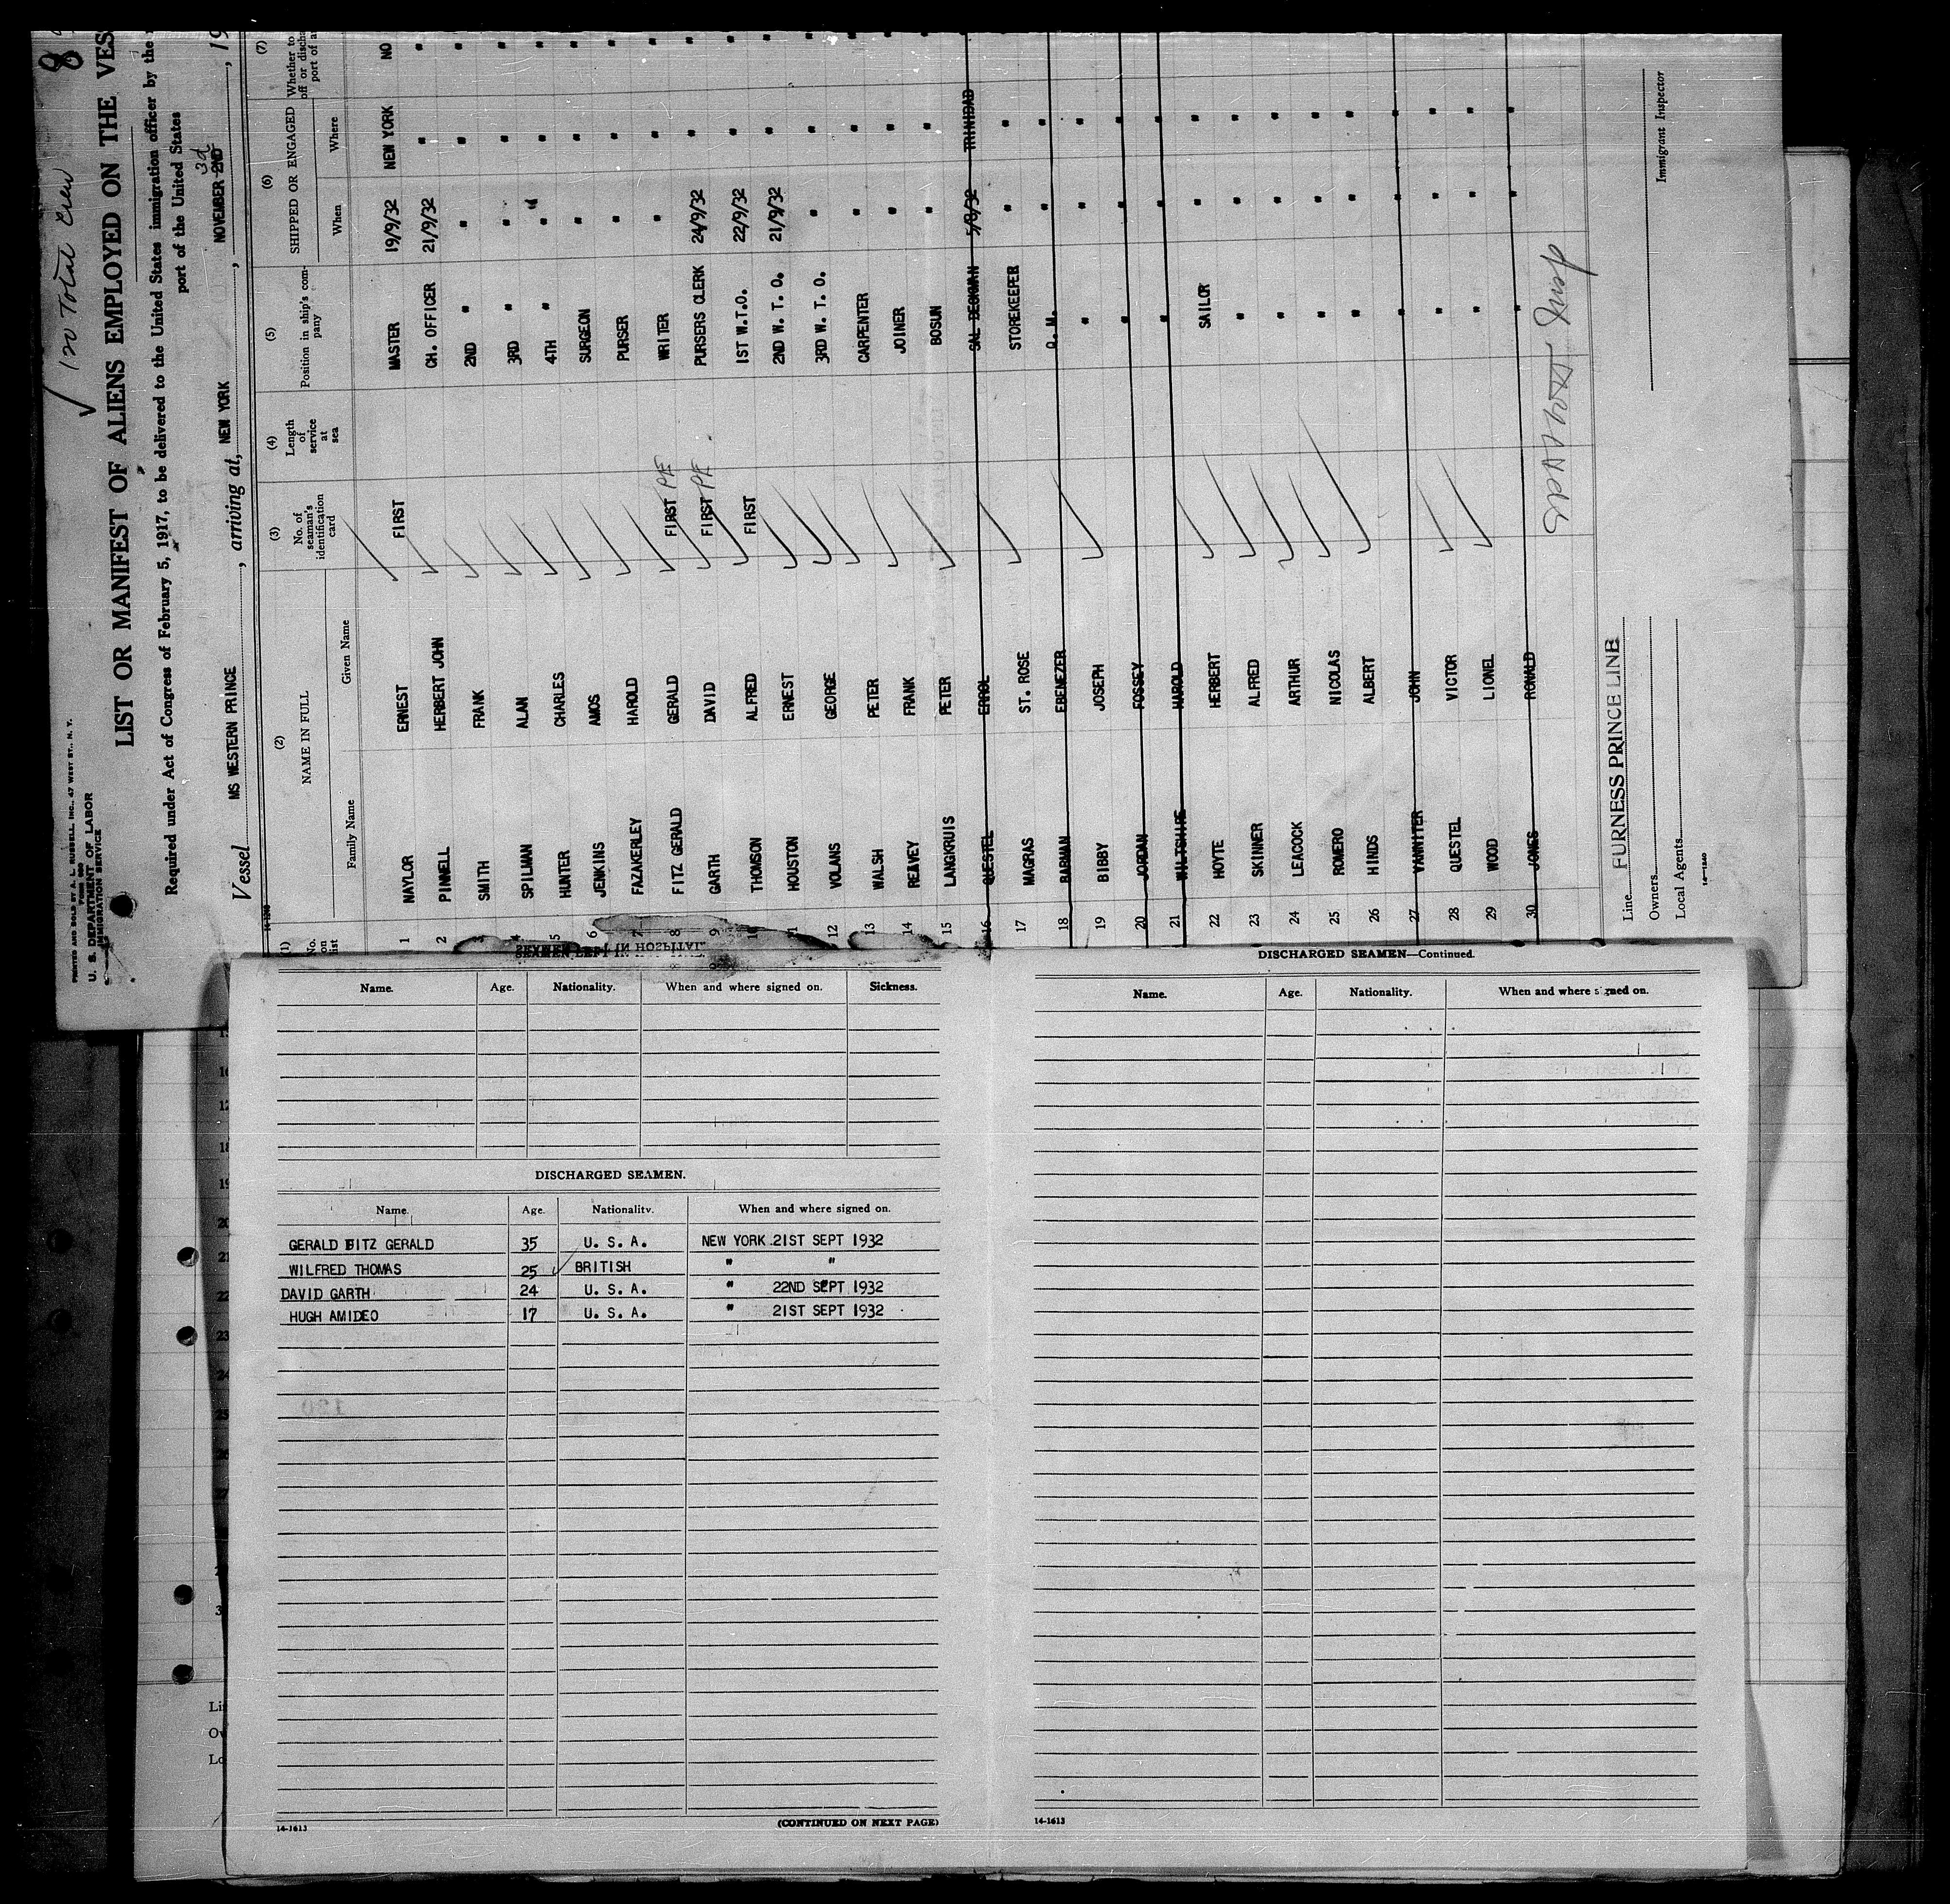 8
✓ 120 Total Crew
PRINTED AND SOLD BY A. L. RUSSELL, INC., 47 WEST ST., N. Y.
Form 680
U. S. DEPARTMENT OF LABOR
IMMIGRATION SERVICE
LIST OR MANIFEST OF ALIENS EMPLOYED ON THE VES
Required under Act of Congress of February 5, 1917, to be delivered to the United States immigration officer by the
port of the United States
Vessel MS WESTERN PRINCE, arriving at, NEW YORK, NOVEMBER 2ND 3d, 19
14-1240
(1) (2) (3) (4) (5) (6) (7)
No. on list NAME IN FULL No. of seaman's identification card Length of service at sea Position in ship's company SHIPPED OR ENGAGED Whether to
off or discha
port of a
Family Name Given Name When Where
1 NAYLOR ERNEST FIRST MASTER 19/9/32 NEW YORK NO
2 PINNELL HERBERT JOHN CH. OFFICER 21/9/32 " "
3 SMITH FRANK 2ND " " " "
4 SPILMAN ALAN 3RD " " " "
5 HUNTER CHARLES 4TH " " " "
6 JENKINS AMOS SURGEON " " "
7 FAZAKERLEY HAROLD PURSER " " "
8 FITZ GERALD GERALD FIRST WRITER " " "
9 GARTH DAVID FIRST PURSERS CLERK 24/9/32 " "
10 THOMSON ALFRED FIRST 1ST W.T.O. 22/9/32 " "
11 HOUSTON ERNEST 2ND W. T. O. 21/9/32 " "
12 VOLANS GEORGE 3RD W. T. O. " " "
13 WALSH PETER CARPENTER " " "
14 REAVEY FRANK JOINER " " "
15 LANGKRUIS PETER BOSUN " " "
16 QUESTEL ERROL SAL DECKMAN 5/8/32 TRINIDAD "
17 MAGRAS ST. ROSE STOREKEEPER " " "
18 BARMAN EBENEZER Q. M. " " "
19 BIBBY JOSEPH " " " "
20 JORDAN FOSSEY " " " "
21 WILTSHIRE HAROLD " " "
22 HOYTE HERBERT SAILOR " "
23 SKINNER ALFRED " " "
24 LEACOCK ARTHUR " " "
25 ROMERO NICOLAS " " "
26 HINDS ALBERT " " "
27 YANNITER JOHN " " "
28 QUESTEL VICTOR " " "
29 WOOD LIONEL " " "
30 JONES RONALD " " "
Line FURNESS PRINCE LINE
Owners
Local Agents
Immigrant Inspector
14-1240
SEAMEN LEFT IN HOSPITAL.
Name. Age. Nationality. When and where signed on. Sickness.
DISCHARGED SEAMEN.
Name. Age. Nationality. When and where signed on.
GERALD FITZ GERALD 35 U. S. A. NEW YORK 21ST SEPT 1932
WILFRED THOMAS 25 ✓ BRITISH " "
DAVID GARTH 24 U. S. A. " 22ND SEPT 1932
HUGH AMIDEO 17 U. S. A. " 21ST SEPT 1932
14-1613
(CONTINUED ON NEXT PAGE)
DISCHARGED SEAMEN—Continued.
Name. Age. Nationality. When and where signed on.
14-1613